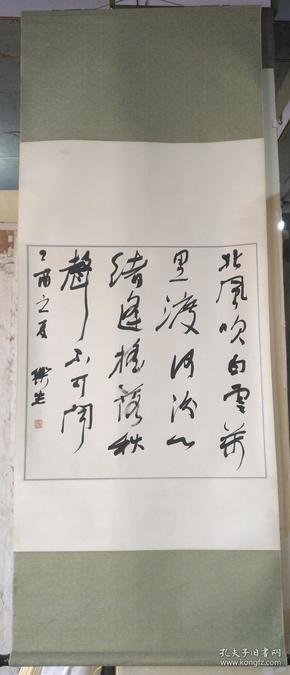 北風吹白雲萬
里渡河汾心
緒逢搖落秋
聲不可聞
丁酉之夏
孔夫子旧书网